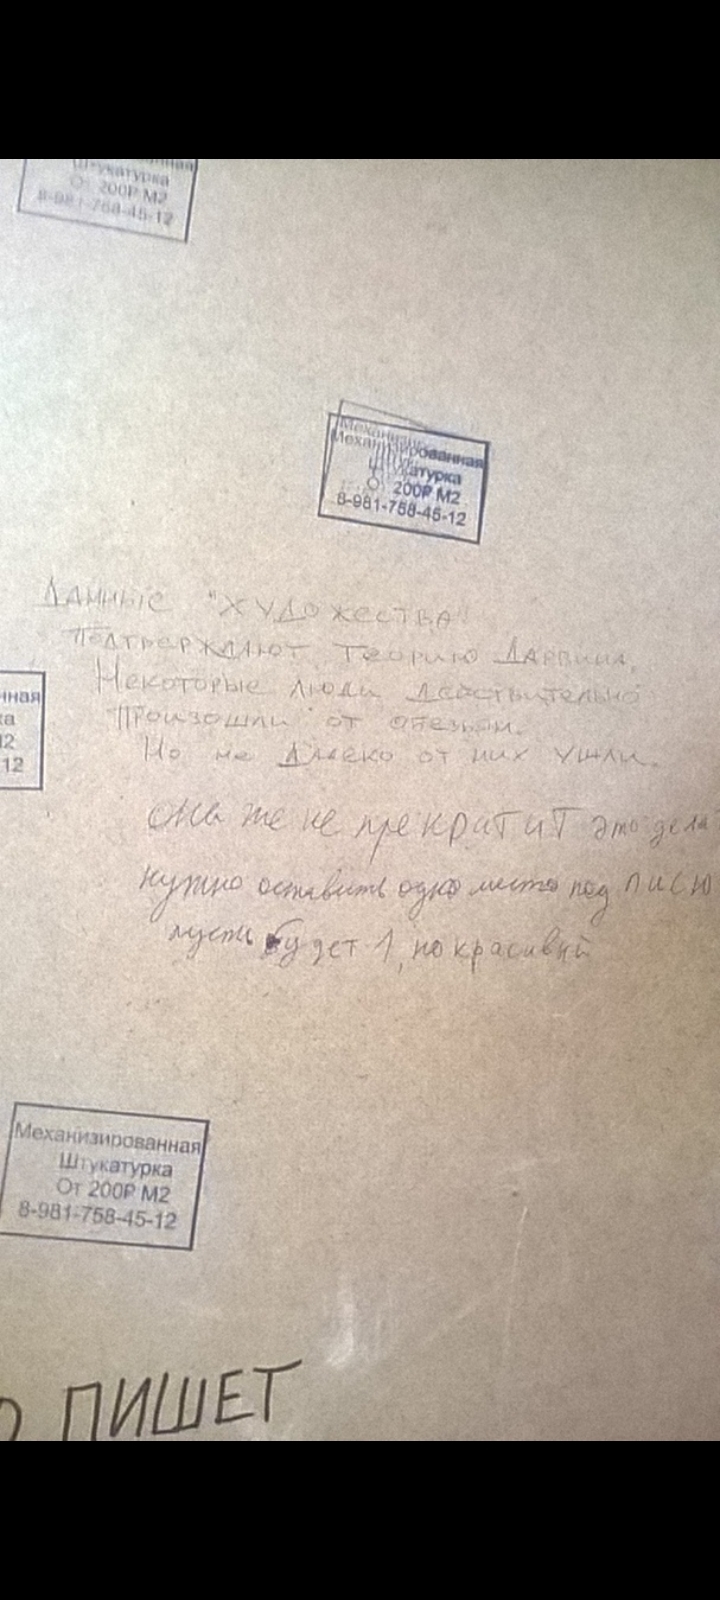 Штукатурка
От 200Р М2
8-981-758-45-12
Механизированная
Штукатурка
От 200Р М2
8-981-758-45-12
Данные "художества"
подтверждают теорию Дарвина.
Некоторые люди действительно
произошли от обезьян.
Но не далеко от них ушли.
нная
ка
М2
12
же не прекратит это дела
нужно оставить одно место под писю
пусть будет 1, но красивый
Механизированная
Штукатурка
От 200Р М2
8-981-758-45-12
ПИШЕТ